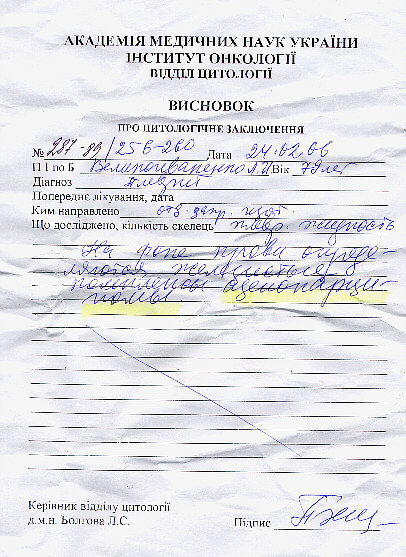 АКАДЕМІЯ МЕДИЧНИХ НАУК УКРАЇНИ
ІНСТИТУТ ОНКОЛОГІЇ
ВІДДІЛ ЦИТОЛОГІЇ
ВИСНОВОК
ПРО ЦИТОЛОГІЧНЕ ЗАКЛЮЧЕННЯ
№ 287-89/256-260 Дата 24.02.06
П І по Б Великоиваненко А.И. Вік 79 лет
Діагноз плеврит
Попереднє лікування, дата
Ким направлено
Що досліджено, кількість скелець плевр. жидкость
На фоне крови опреде-
ляются железистые
комплексы аденокарци-
номы
Керівник відділу цитології
д.м.н. Болгова Л.С.
Підпис